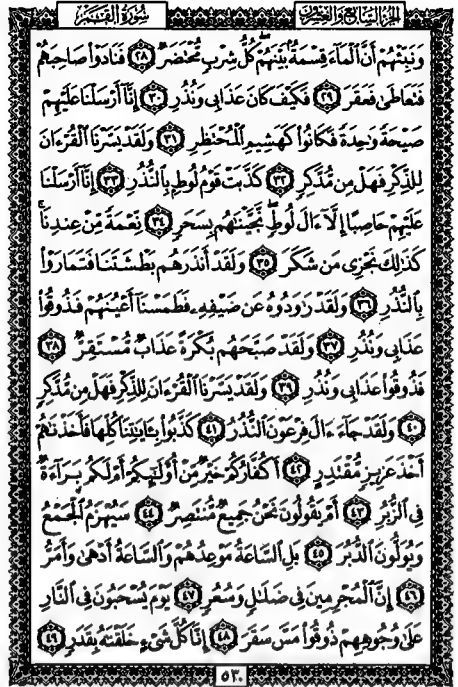 الجزء السابع والعشرون
سُورَةُ القَمَر
وَنَبِّئْهُمْ أَنَّ ٱلْمَآءَ قِسْمَةٌۢ بَيْنَهُمْۖ كُلُّ شِرْبٍ مُّحْتَضَرٌ ٢٨ فَنَادَوْا۟ صَاحِبَهُمْ
فَتَعَاطَىٰ فَعَقَرَ ٢٩ فَكَيْفَ كَانَ عَذَابِى وَنُذُرِ ٣٠ إِنَّآ أَرْسَلْنَا عَلَيْهِمْ
صَيْحَةً وَٰحِدَةً فَكَانُوا۟ كَهَشِيمِ ٱلْمُحْتَظِرِ ٣١ وَلَقَدْ يَسَّرْنَا ٱلْقُرْءَانَ
لِلذِّكْرِ فَهَلْ مِن مُّدَّكِرٍ ٣٢ كَذَّبَتْ قَوْمُ لُوطٍۭ بِٱلنُّذُرِ ٣٣ إِنَّآ أَرْسَلْنَا
عَلَيْهِمْ حَاصِبًا إِلَّآ ءَالَ لُوطٍۖ نَّجَّيْنَٰهُم بِسَحَرٍ ٣٤ نِّعْمَةً مِّنْ عِندِنَاۚ
كَذَٰلِكَ نَجْزِى مَن شَكَرَ ٣٥ وَلَقَدْ أَنذَرَهُم بَطْشَتَنَا فَتَمَارَوْا۟
بِٱلنُّذُرِ ٣٦ وَلَقَدْ رَٰوَدُوهُ عَن ضَيْفِهِۦ فَطَمَسْنَآ أَعْيُنَهُمْ فَذُوقُوا۟
عَذَابِى وَنُذُرِ ٣٧ وَلَقَدْ صَبَّحَهُم بُكْرَةً عَذَابٌ مُّسْتَقِرٌّ ٣٨
فَذُوقُوا۟ عَذَابِى وَنُذُرِ ٣٩ وَلَقَدْ يَسَّرْنَا ٱلْقُرْءَانَ لِلذِّكْرِ فَهَلْ مِن مُّدَّكِرٍ
٤٠ وَلَقَدْ جَآءَ ءَالَ فِرْعَوْنَ ٱلنُّذُرُ ٤١ كَذَّبُوا۟ بِـَٔايَٰتِنَا كُلِّهَا فَأَخَذْنَٰهُمْ
أَخْذَ عَزِيزٍ مُّقْتَدِرٍ ٤٢ أَكُفَّارُكُمْ خَيْرٌ مِّنْ أُو۟لَٰٓئِكُمْ أَمْ لَكُم بَرَآءَةٌ
فِى ٱلزُّبُرِ ٤٣ أَمْ يَقُولُونَ نَحْنُ جَمِيعٌ مُّنتَصِرٌ ٤٤ سَيُهْزَمُ ٱلْجَمْعُ
وَيُوَلُّونَ ٱلدُّبُرَ ٤٥ بَلِ ٱلسَّاعَةُ مَوْعِدُهُمْ وَٱلسَّاعَةُ أَدْهَىٰ وَأَمَرُّ
٤٦ إِنَّ ٱلْمُجْرِمِينَ فِى ضَلَٰلٍ وَسُعُرٍ ٤٧ يَوْمَ يُسْحَبُونَ فِى ٱلنَّارِ
عَلَىٰ وُجُوهِهِمْ ذُوقُوا۟ مَسَّ سَقَرَ ٤٨ إِنَّا كُلَّ شَىْءٍ خَلَقْنَٰهُ بِقَدَرٍ ٤٩
٥٣٠